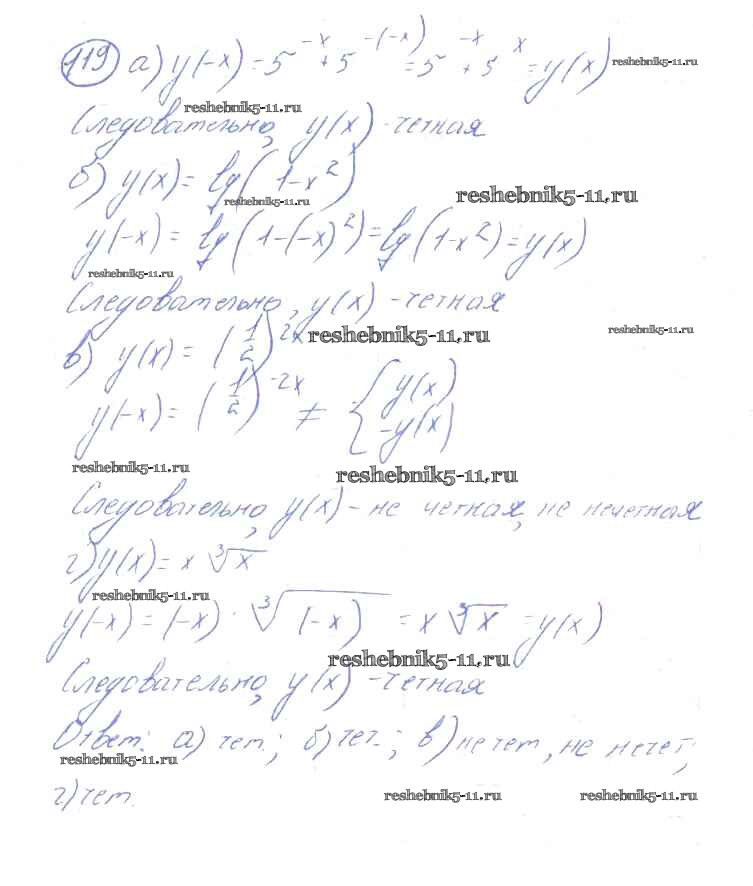 119 а) y(-x) = 5^{-x} + 5^{-(-x)} = 5^{-x} + 5^{x} = y(x) reshebnik5-11.ru
reshebnik5-11.ru
Следовательно, y(x) - четная
б) y(x) = lg(1-x²)
reshebnik5-11.ru reshebnik5-11.ru
y(-x) = lg(1-(-x)²) = lg(1-x²) = y(x)
reshebnik5-11.ru
Следовательно, y(x) - четная
в) y(x) = (1/2)^{2x} reshebnik5-11.ru reshebnik5-11.ru
y(-x) = (1/2)^{-2x} ≠ { y(x) -y(x)
reshebnik5-11.ru reshebnik5-11.ru
Следовательно, y(x) - не четная, не нечетная
г) y(x) = x ∛x
reshebnik5-11.ru
y(-x) = (-x) · ∛(-x) = x ∛x = y(x)
reshebnik5-11.ru
Следовательно, y(x) - четная
Ответ: а) чет.; б) чет.; в) не чет, не нечет;
reshebnik5-11.ru
г) чет.
reshebnik5-11.ru reshebnik5-11.ru